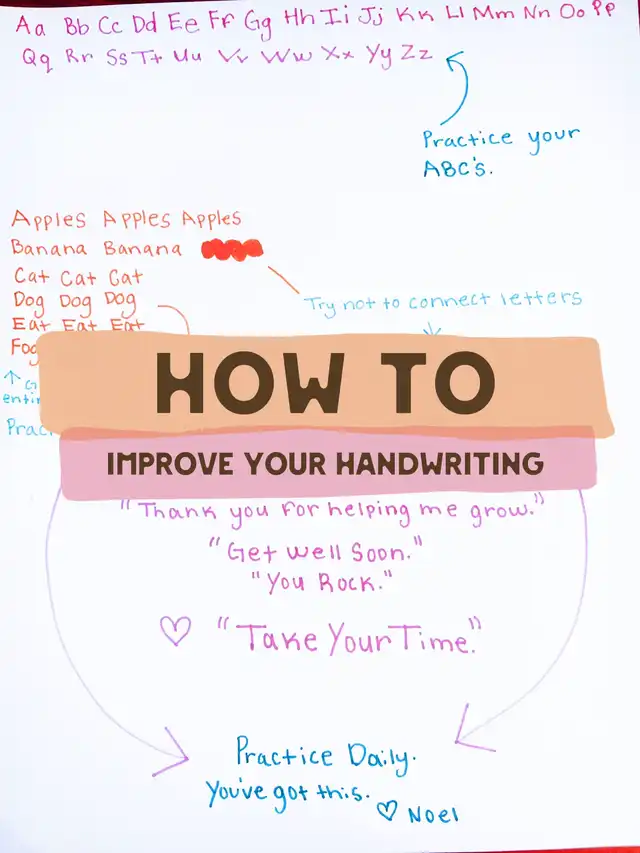 Aa Bb Cc Dd Ee Ff Gg Hh Ii Jj Kk Ll Mm Nn Oo Pp
Qq Rr Ss Tt Uu Vv Ww Xx Yy Zz
Practice your
ABC's.
Apples Apples Apples
Banana Banana
Cat Cat Cat
Dog Dog Dog
Try not to connect letters
Eat Eat Eat
HOW TO
IMPROVE YOUR HANDWRITING
"Thank you for helping me grow."
"Get well Soon."
"You Rock."
"Take Your Time."
Practice Daily.
You've got this.
Noel